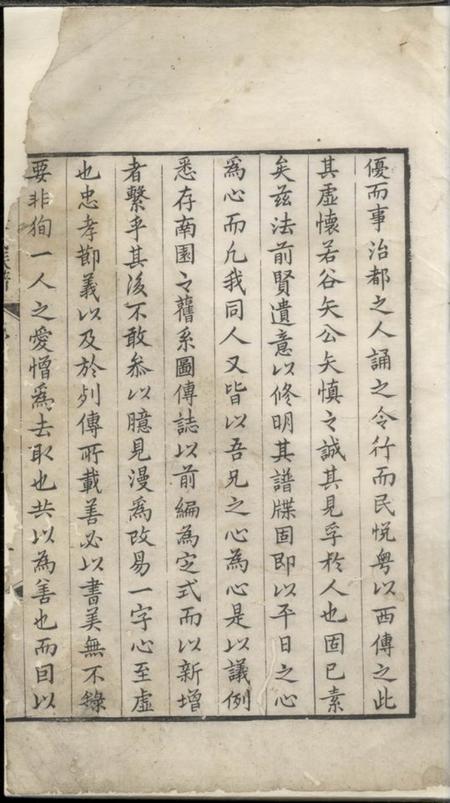 優而事治都之人誦之令行而民悅粤以西傳之此
其虛懷若谷矢公矢慎之誠其見孚於人也固已素
矣兹法前賢遺意以修明其譜牒固即以平日之心
為心而凡我同人又皆以吾兄之心為心是以議例
悉存南園之舊系圖傳誌以前編為定式而以新增
者繫乎其後不敢叅以臆見漫為改易一字心至虛
也忠孝節義以及於列傳所載善必以書美無不錄
要非狥一人之愛憎為去取也共以為善也而因以